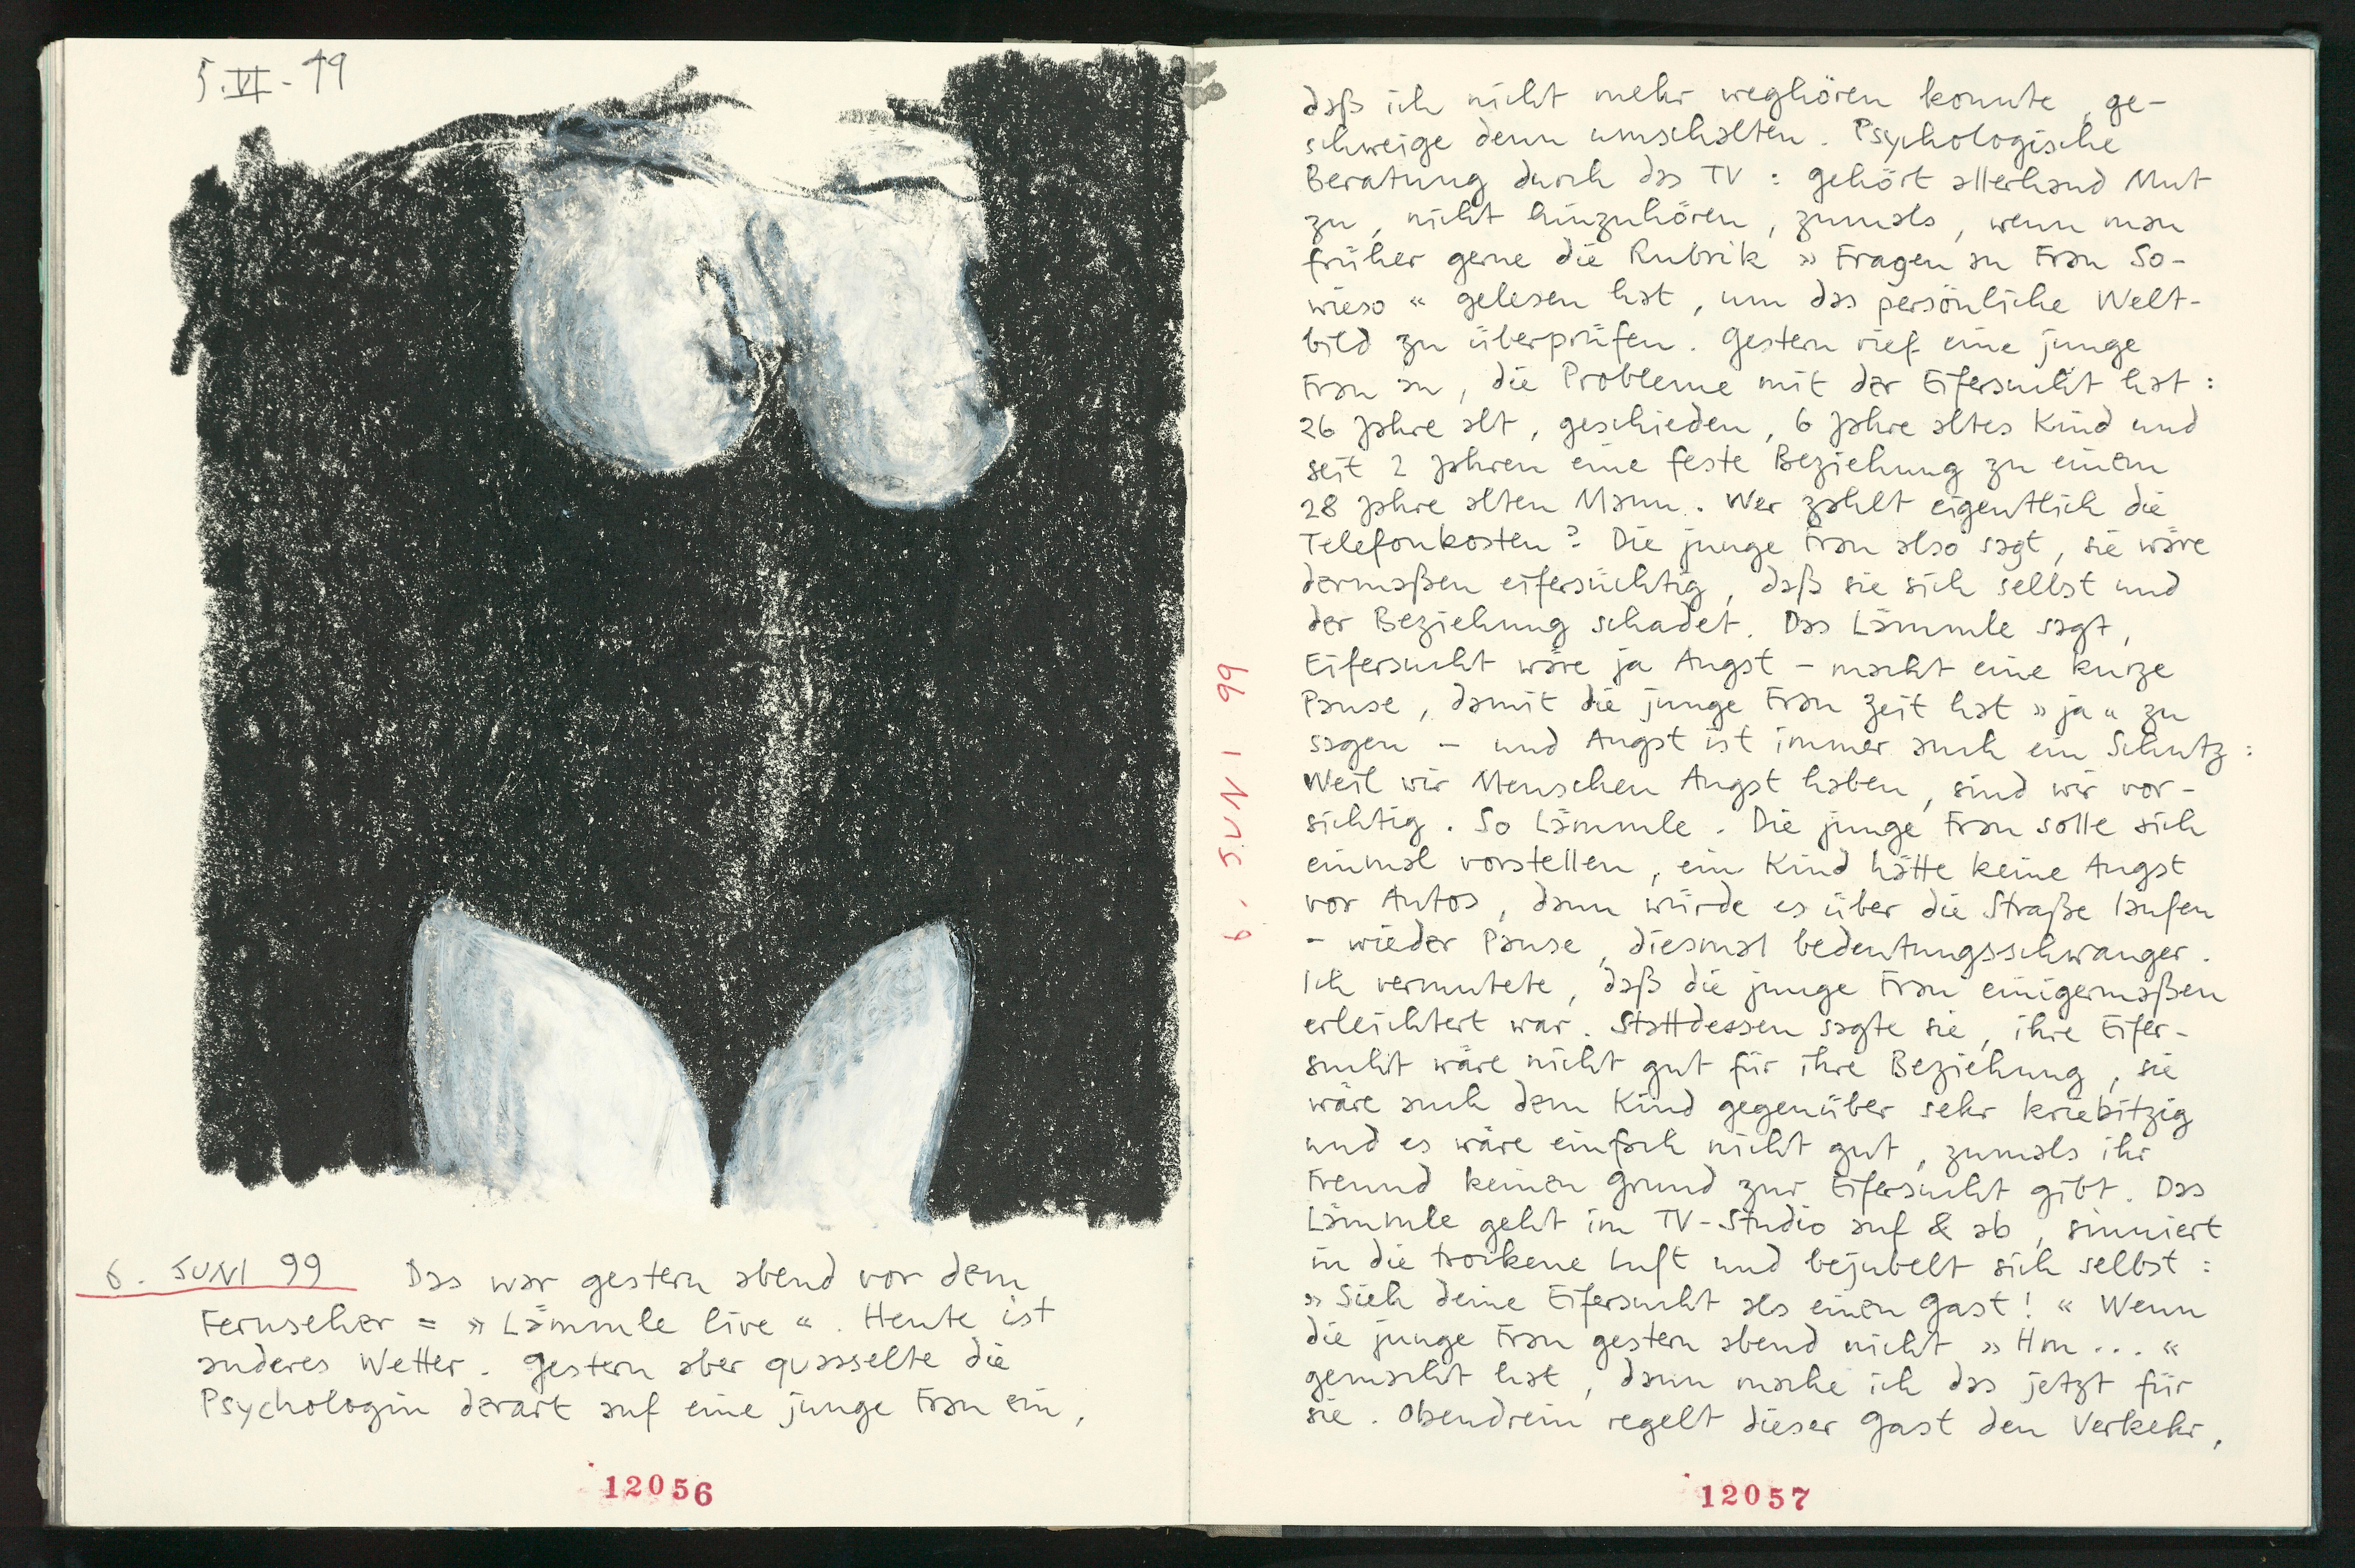 5.VI-99
6. JUNI 99 Das war gestern abend vor dem
Fernseher = »Lämmle live«. Heute ist
anderes Wetter. Gestern aber quasselte die
Psychologin derart auf eine junge Frau ein,
12056
6. JUNI 99
daß ich nicht mehr weghören konnte, ge-
schweige denn umschalten. Psychologische
Beratung durch das TV: gehört allerhand Mut
zu, nicht hinzuhören, zumals, wenn man
früher gerne die Rubrik »Fragen an Frau So-
wieso« gelesen hat, um das persönliche Welt-
bild zu überprüfen. Gestern rief eine junge
Frau an, die Probleme mit der Eifersucht hat:
26 Jahre alt, geschieden, 6 Jahre altes Kind und
seit 2 Jahren eine feste Beziehung zu einem
28 Jahre alten Mann. Wer zahlt eigentlich die
Telefonkosten? Die junge Frau also sagt, sie wäre
dermaßen eifersüchtig, daß sie sich selbst und
der Beziehung schadet. Das Lämmle sagt,
Eifersucht wäre ja Angst – macht eine kurze
Pause, damit die junge Frau Zeit hat »ja« zu
sagen – und Angst ist immer auch ein Schutz:
Weil wir Menschen Angst haben, sind wir vor-
sichtig. So Lämmle. Die junge Frau solle sich
einmal vorstellen, ein Kind hätte keine Angst
vor Autos, dann würde es über die Straße laufen
– wieder Pause, diesmal bedeutungsschwanger.
Ich vermutete, daß die junge Frau einigermaßen
erleichtert war. Stattdessen sagte sie, ihre Eifer-
sucht wäre nicht gut für ihre Beziehung, sie
wäre auch dem Kind gegenüber sehr kriebitzig
und es wäre einfach nicht gut, zumals ihr
Freund keinen Grund zur Eifersucht gibt. Das
Lämmle geht im TV-Studio auf & ab, sinniert
in die trockene Luft und bejubelt sich selbst:
»Sieh deine Eifersucht als einen Gast!« Wenn
die junge Frau gestern abend nicht »Hm...«
gemacht hat, dann mache ich das jetzt für
sie. Obendrein regelt dieser Gast den Verkehr,
12057